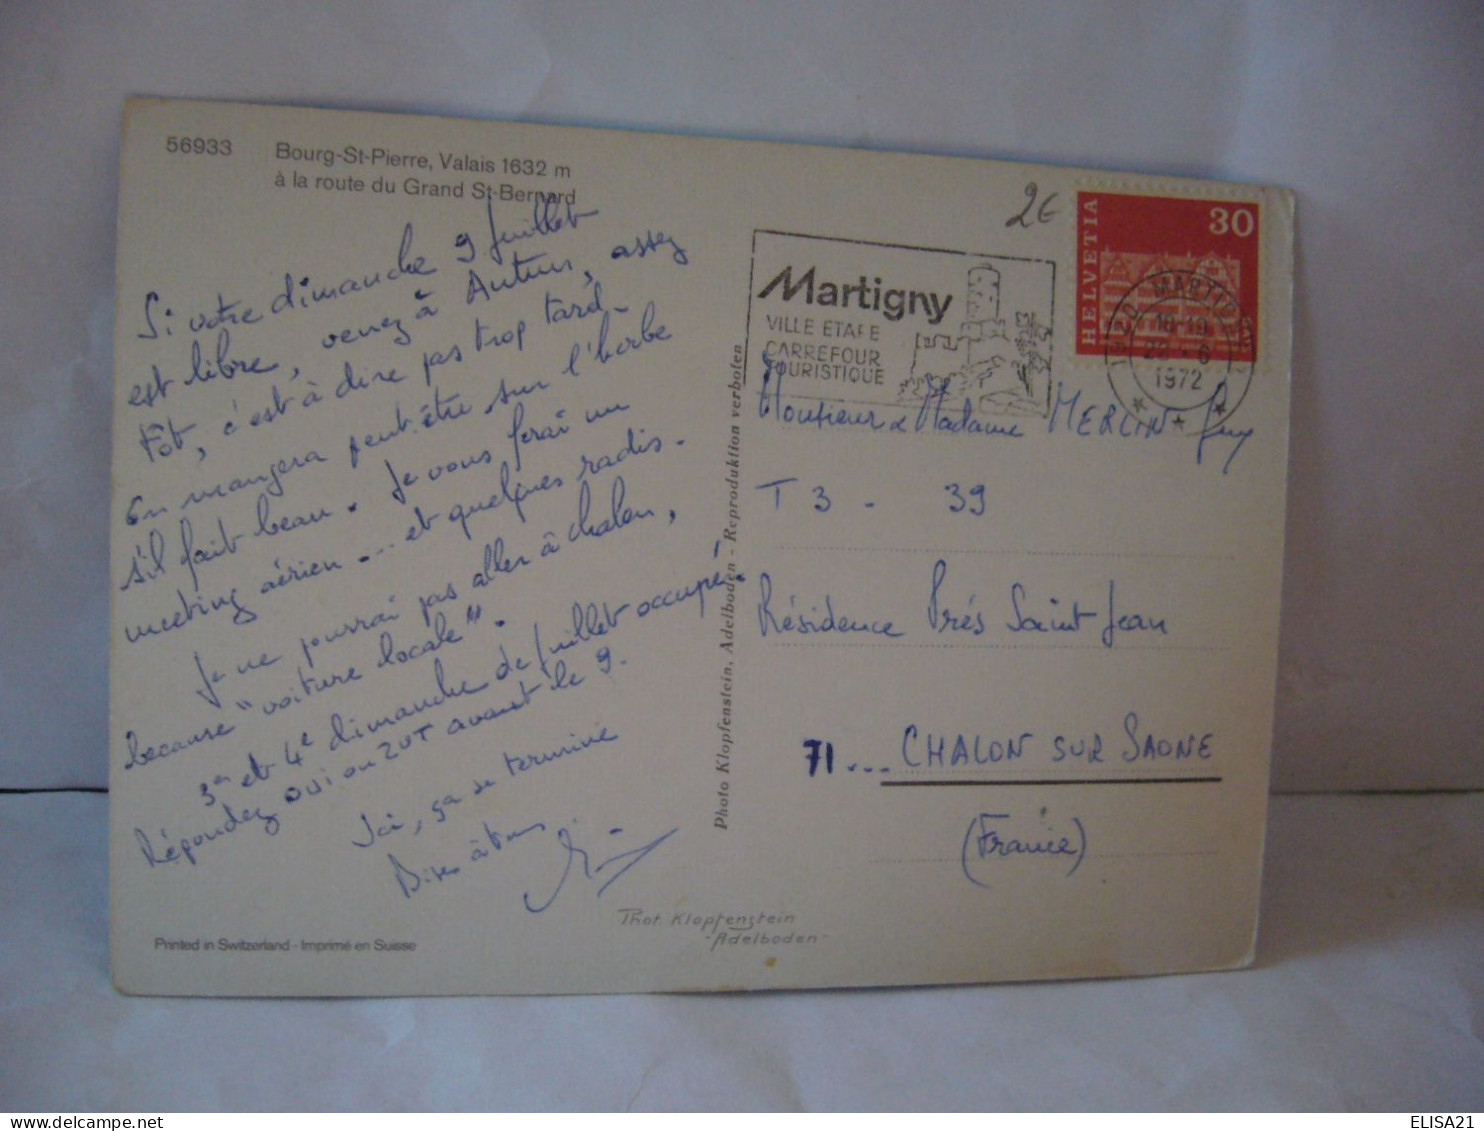 56933 Bourg-St-Pierre, Valais 1632 m
à la route du Grand St-Bernard
Si votre dimanche 9 Juillet
est libre, venez à Autun, assez
tôt, c'est à dire pas trop tard -
on mangera peut-être sur l'herbe
s'il fait beau. Je vous ferai un
meeting aérien ... et quelques radis.
Je ne pourrai pas aller à Chalon,
because "voiture locale".
3e et 4e dimanche de Juillet occupé.
Répondez oui ou zut avant le 9.
Ici, ça se termine
Bises à tous
Printed in Switzerland - Imprimé en Suisse
Phot. Klopfenstein
-Adelboden-
Photo Klopfenstein, Adelboden - Reproduktion verboten
2€
Martigny
VILLE ETAPE
CARREFOUR
TOURISTIQUE
HELVETIA 30
1920 MARTIGNY
18-19
22 - 6
1972
Monsieur & Madame MERLIN Guy
T 3 - 39
Résidence Prés Saint Jean
71 ... CHALON SUR SAONE
(France)
ELISA21